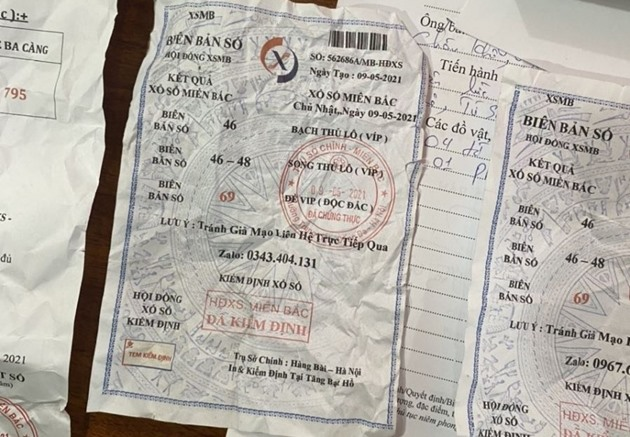 BA CÀNG
795
đủ
2021
XSMB
BIÊN BẢN SỐ
HỘI ĐỒNG XSMB
KẾT QUẢ
XỔ SỐ MIỀN BẮC
SỐ: 562686A/MB-HĐXS
Ngày Tạo : 09-05-2021
XỔ SỐ MIỀN BẮC
Chủ Nhật, Ngày 09-05-2021
BIÊN BẢN SỐ 46 BẠCH THỦ LÔ (VÍP)
BIÊN BẢN SỐ 46 – 48 SONG THỦ LÔ (VÍP)
BIÊN BẢN SỐ 69 ĐỀ VIP (ĐỘC ĐẮC)
09-05-2021
ĐÃ CHỨNG THỰC
LƯU Ý : Tránh Giả Mạo Liên Hệ Trực Tiếp Qua
Zalo: 0343.404.131
KIỂM ĐỊNH XỔ SỐ
HỘI ĐỒNG
XỔ SỐ
KIỂM ĐỊNH
HĐXS. MIỀN BẮC
ĐÃ KIỂM ĐỊNH
TEM KIỂM ĐỊNH
Trụ Sở Chính : Hàng Bài – Hà Nội
In & Kiểm Định Tại Tăng Bạt Hổ
Ông/Bà
Tiến hành
Các đồ vật,
04
01
XSMB
BIÊN BẢN SỐ
HỘI ĐỒNG XSMB
KẾT QUẢ
XỔ SỐ MIỀN BẮC
BIÊN BẢN SỐ 46
BIÊN BẢN SỐ 46 – 48
BIÊN BẢN SỐ 69
LƯU Ý : Tránh Giả Mạo
Zalo: 0967.
KIỂM ĐỊNH X
HỘI ĐỒNG
XỔ SỐ
KIỂM ĐỊNH
HĐXS. M
ĐÃ KIỂ
TEM KIỂM ĐỊNH